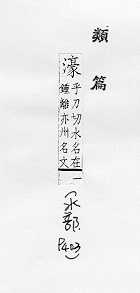 類篇
濠
乎刀切水名在
鍾離亦州名文一
(水部
P403)